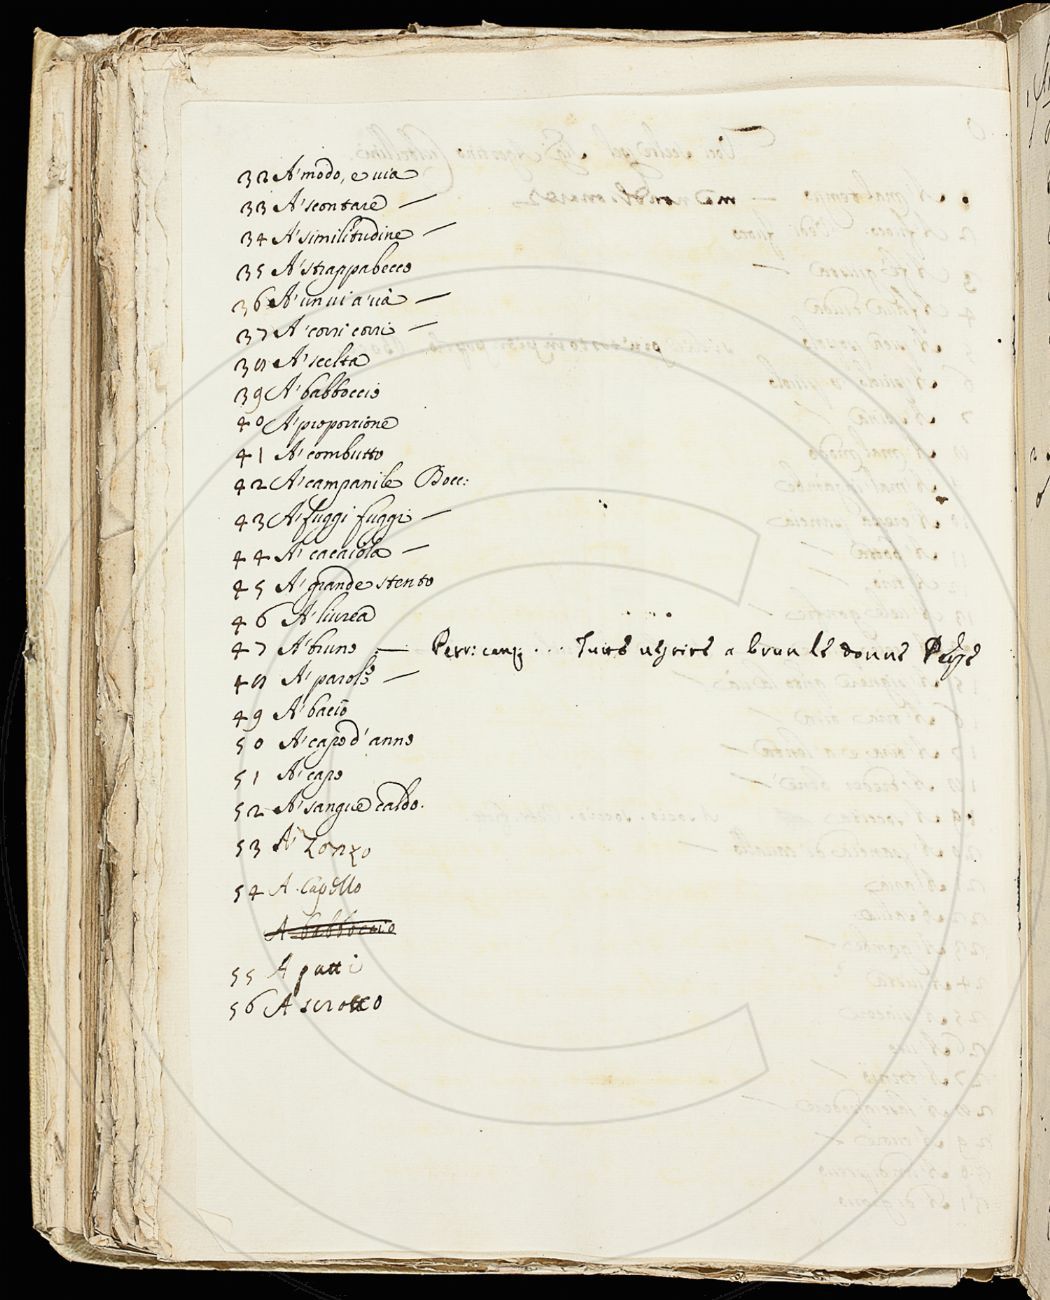 32 A' modo, e via
33 A' scontare —
34 A' similitudine —
35 A' strappabecco
36 A' un vi a via —
37 A' corri corri —
38 A' scelta
39 A' babboccio
40 A' proporzione
41 A' combutto
42 A' campanile Bocc:
43 A' fuggi fuggi —
44 A' cacaiola —
45 A' grande stento
46 A' liurea
47 A' bruno — Petr: canz ... Tutte vestite a brun le donne
48 A' parole —
49 A' bacio
50 A' capo d'anno
51 A' capo
52 A' sangue caldo.
53 A' Zonzo
54 A Capello
A babboccio
55 A patti
56 A scrocco